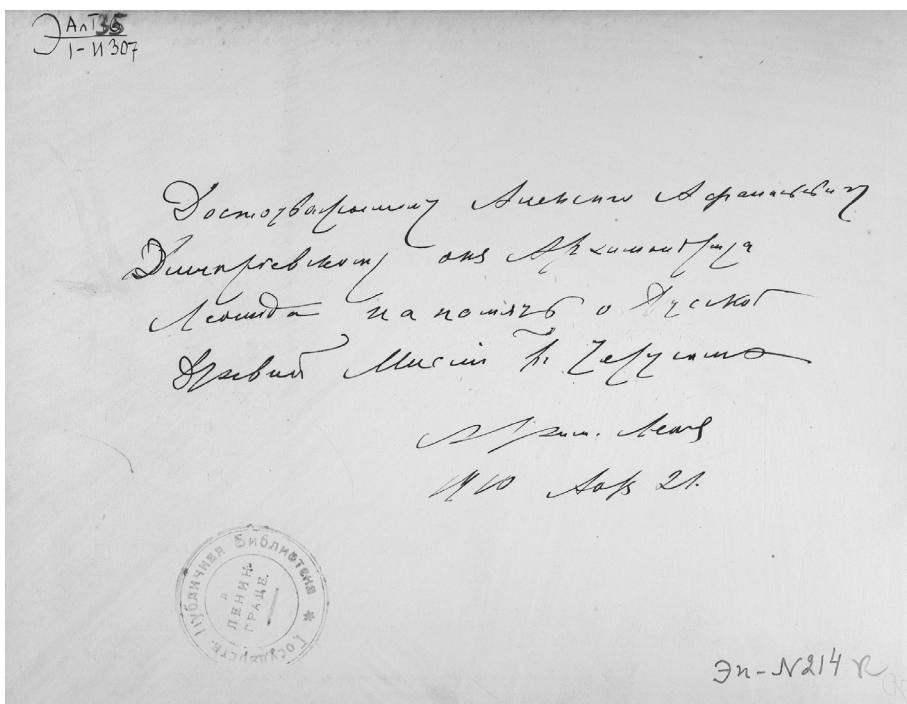 Э АлТ35
1-И307
Достоуважаемому Алексею Афанасьевичу
Дмитриевскому отъ Архимандрита
Леонида на память о Русской
Духовной Миссіи въ Іерусалиме
Архим. Леонид
1910 Апр 21.
Государств. Публичная Библиотека
в
ЛЕНИН-
ГРАДЕ.
Эп-N214